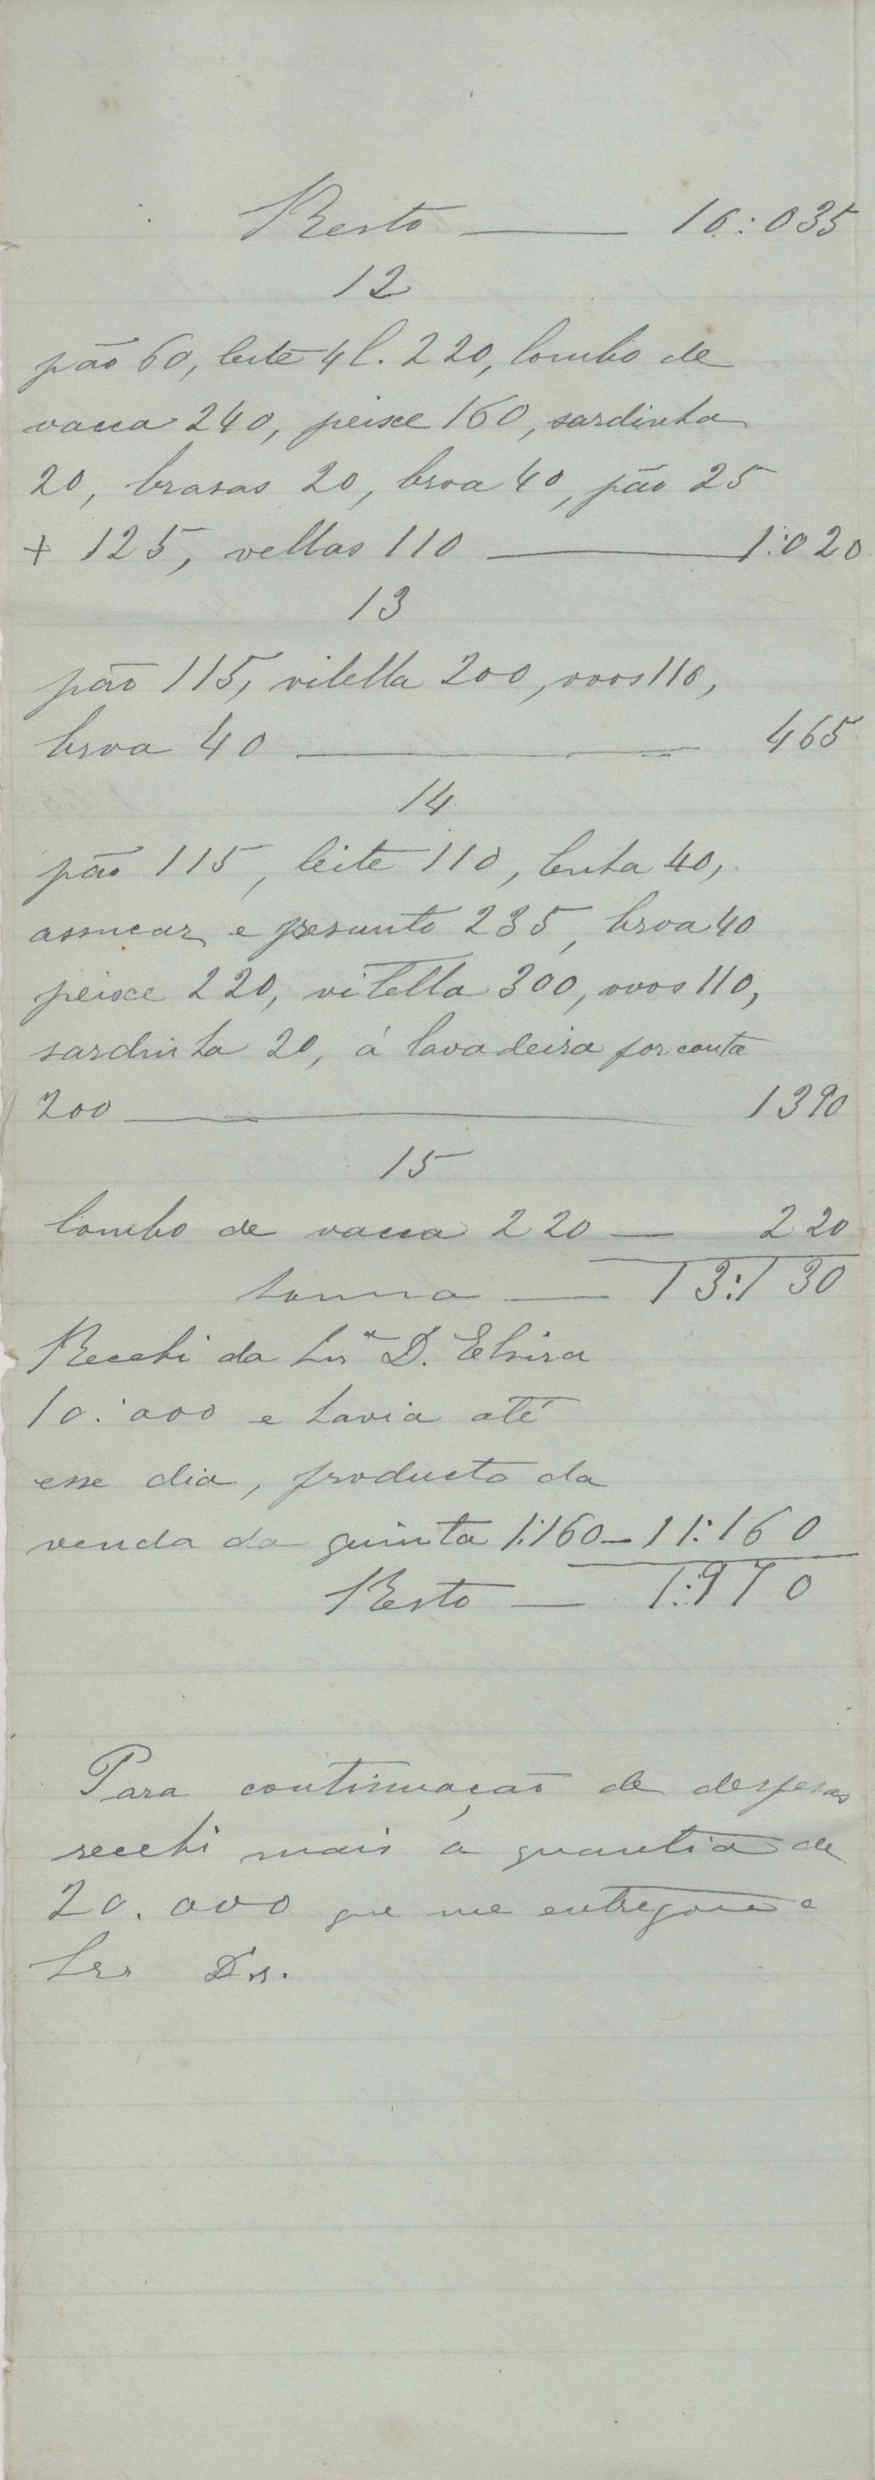 Resto — 10:035
12
pão 60, leite 4 l. 220, lombo de
vacca 240, peixe 160, sardinha
20, brasas 20, broa 40, pão 25
+ 125, vellas 110 — 1:020
13
pão 115, vitella 200, ovos 110,
broa 40 — 465
14
pão 115, leite 110, lenha 40,
assucar e presunto 235, broa 40
peixe 220, vitella 300, ovos 110,
sardinha 20, á lavadeira por conta
200 — 1390
15
lombo de vacca 220 — 220
Somma — 13:130
Recebi da Snrª D. Elvira
10:000 e havia até
esse dia, producto da
venda da quinta 1:160 — 11:160
Resto — 1:970
Para continuação de despesas
recebi mais a quantia de
20.000 que me entregou o
Snr Dr.